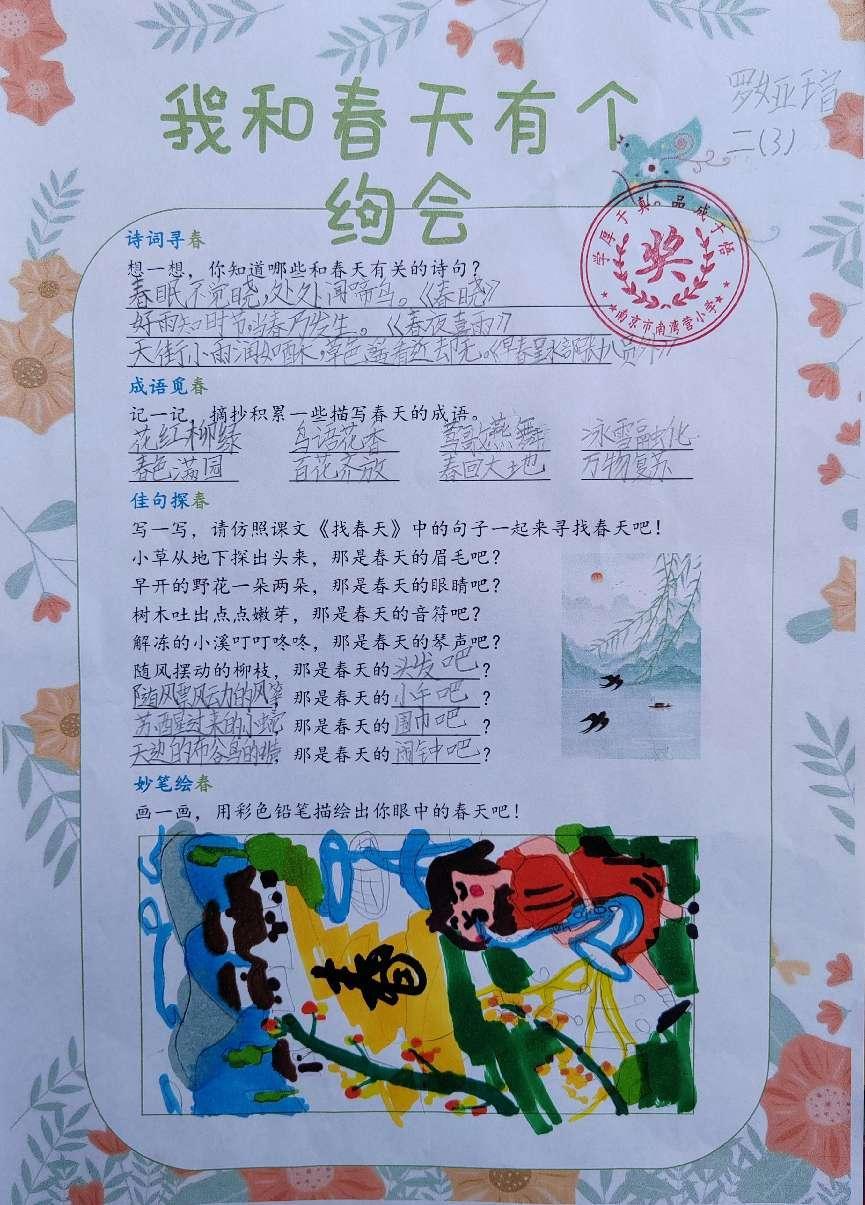 我和春天有个
绚会
罗亚瑄
二(3)
学厚于真。品成于悟
奖
南京市南湾营小学
诗词寻春
想一想，你知道哪些和春天有关的诗句？
春眠不觉晓，处处闻啼鸟。《春晓》
好雨知时节，当春乃发生。《春夜喜雨》
天街小雨润如酥，草色遥看近去无。《早春呈水部张十八员外》
成语觅春
记一记，摘抄积累一些描写春天的成语。
花红柳绿 鸟语花香 莺歌燕舞 冰雪融化
春色满园 百花齐放 春回大地 万物复苏
佳句探春
写一写，请仿照课文《找春天》中的句子一起来寻找春天吧！
小草从地下探出头来，那是春天的眉毛吧？
早开的野花一朵两朵，那是春天的眼睛吧？
树木吐出点点嫩芽，那是春天的音符吧？
解冻的小溪叮叮咚咚，那是春天的琴声吧？
随风摆动的柳枝，那是春天的头发吧？
随风飘动的风筝，那是春天的小午吧？
苏醒过来的小蛇，那是春天的围巾吧？
天边的布谷鸟的，那是春天的闹钟吧？
妙笔绘春
画一画，用彩色铅笔描绘出你眼中的春天吧！
春